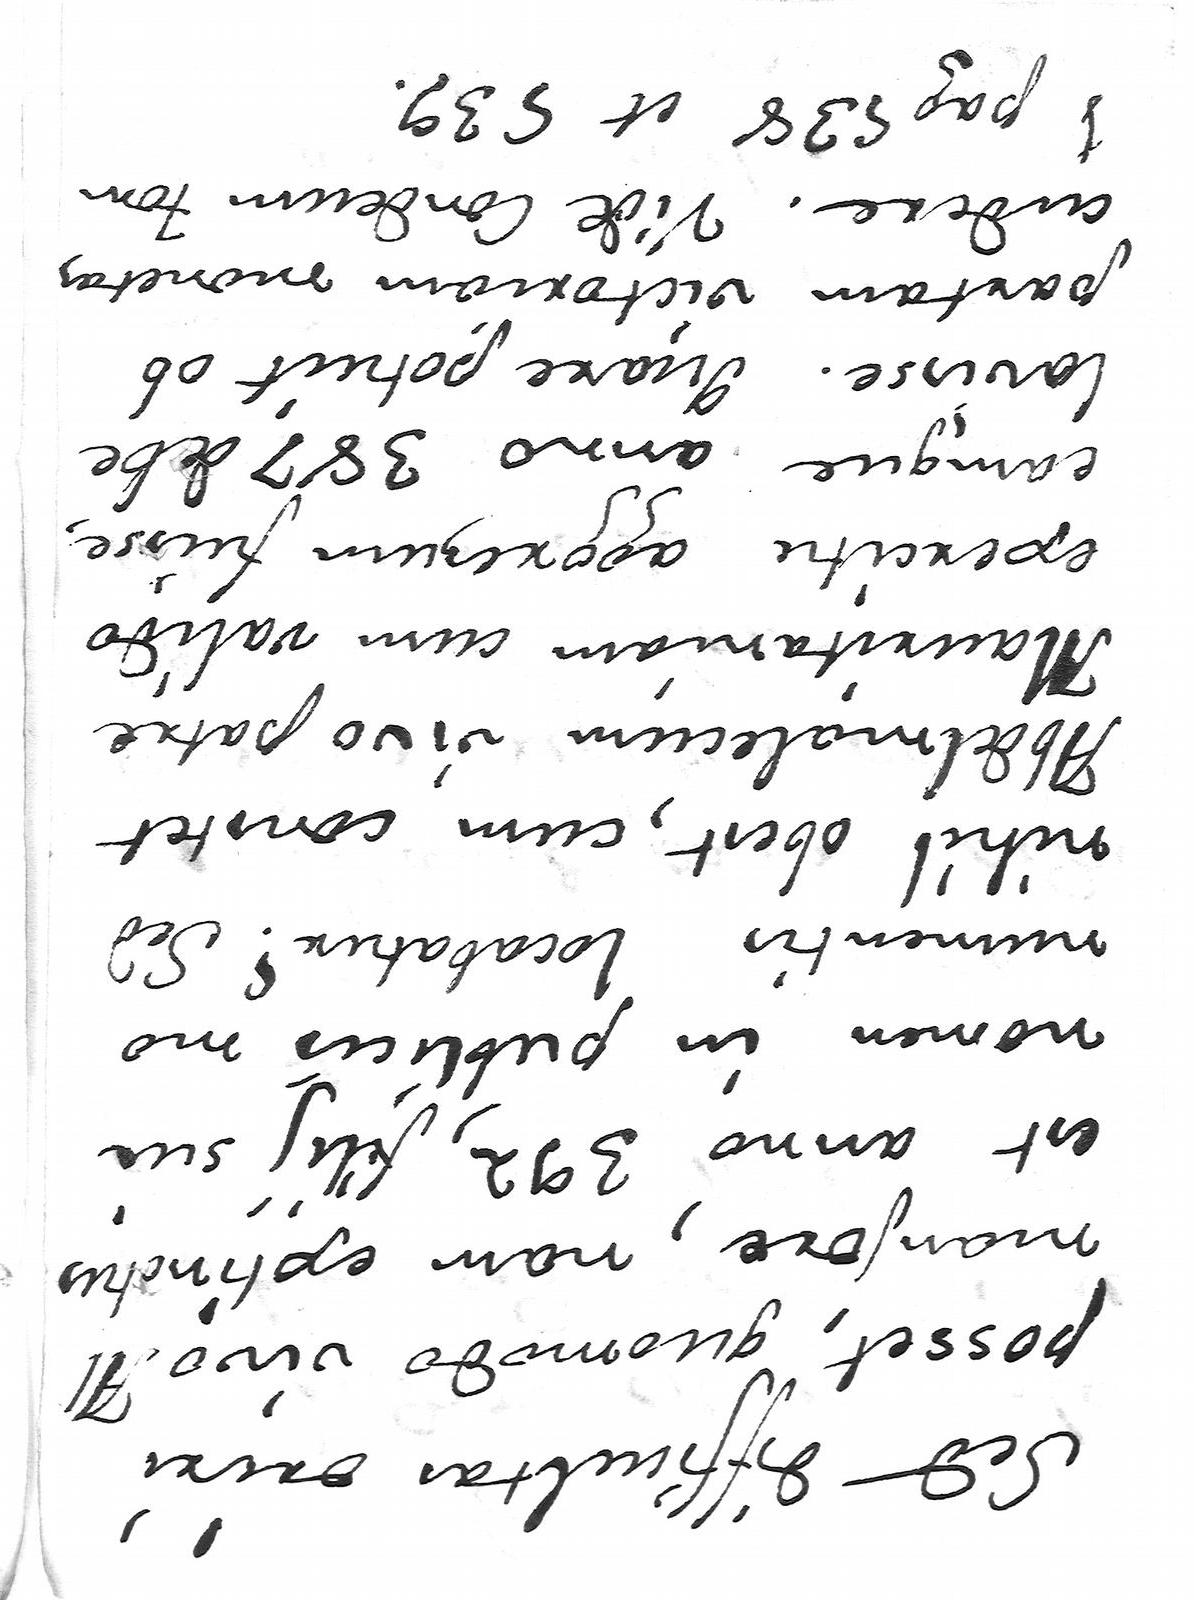 Sed difficultas oriri
posset, quomodo vivo Al
mansore, nam extinctus
est anno 392, filij sui
nomen in publicis mo
numentis locabatur? Sed
nihil obest, cum constet
Abdelmalecum vivo patre
Mauritaniam cum valido
exercitu aggressum fuisse,
eamque anno 387 debe
lavisse. Quare potuit ob
partam victoriam monetas
cudere. Vide Condeum tom
1 pag 538 et 539.